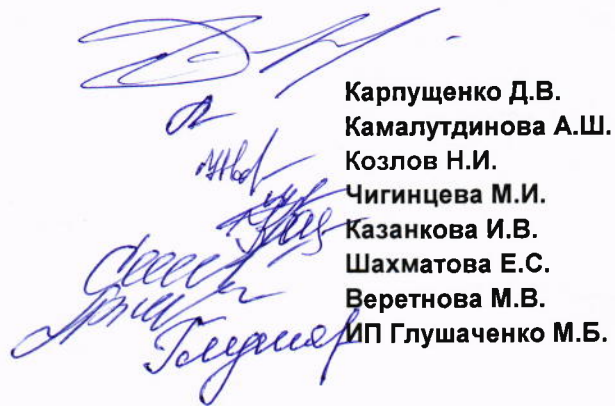 Карпущенко Д.В.
Камалутдинова А.Ш.
Козлов Н.И.
Чигинцева М.И.
Казанкова И.В.
Шахматова Е.С.
Веретнова М.В.
ИП Глушаченко М.Б.